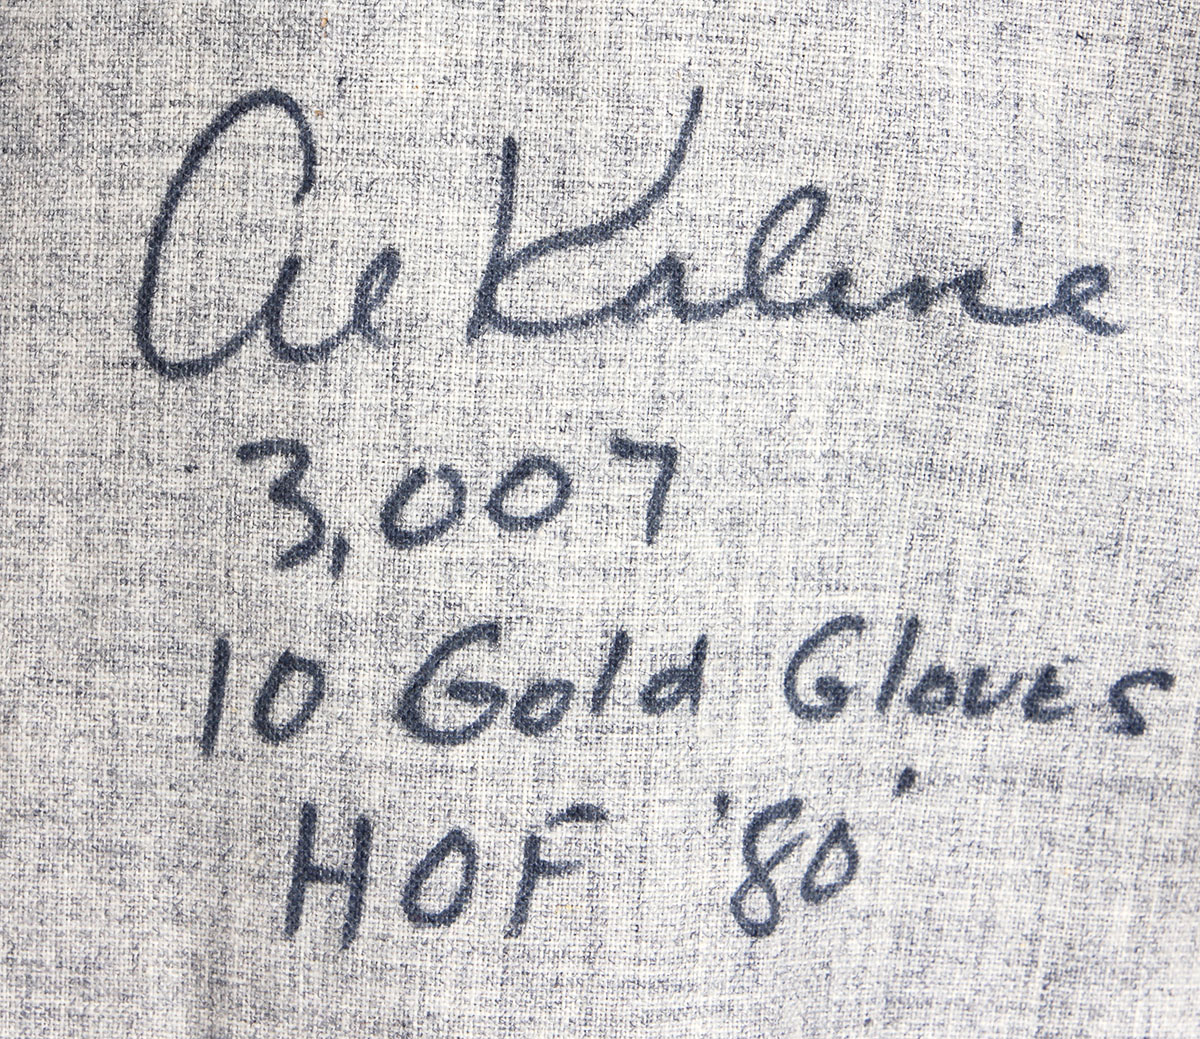 Al Kaline
3,007
10 Gold Gloves
HOF '80